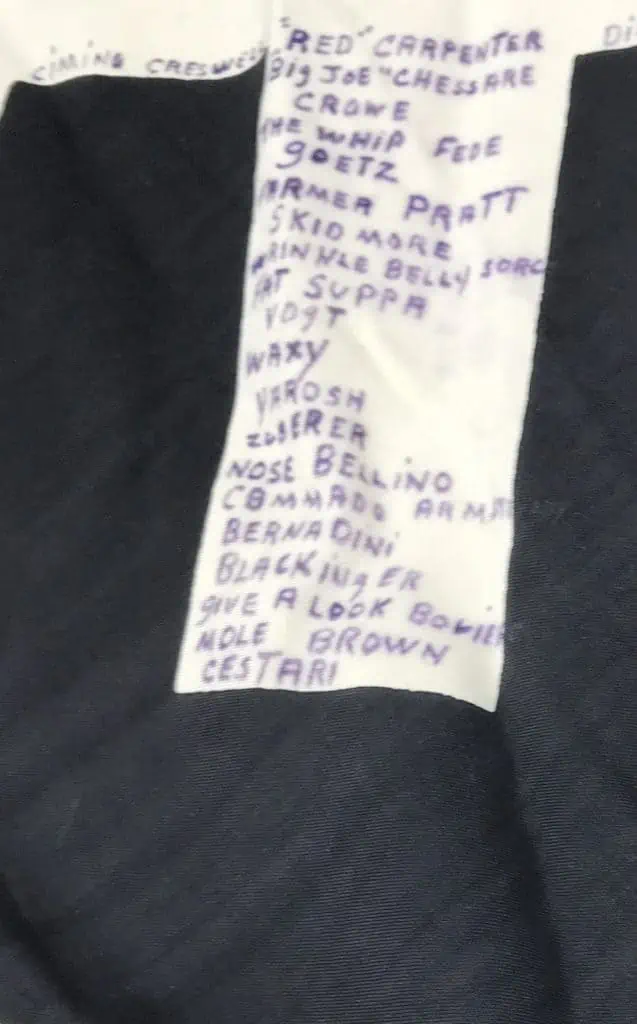 CIMINO CRESWELL
DI
"RED" CARPENTER
Big JOE" CHESSARE
CROWE
THE WHIP FEDE
gOETZ
ARMER PRATT
SKIDMORE
RINKLE BELLY SORC
FAT SUPPA
VOgT
WAXY
YAROSH
ZUBERER
NOSE BELLINO
COMMADO ARM
BERNADINI
BLACKINgER
gIVE A LOOK BOGIER
MOLE BROWN
CESTARI